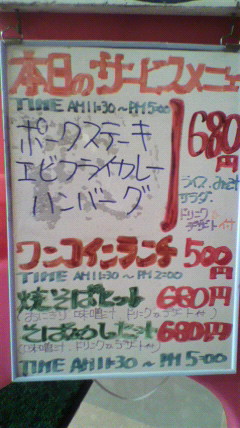 本日のサービスメニュー
TIME AM11:30～PM5:00
ポークステーキ
エビフライカレー
ハンバーグ
680円
ライス、みそ汁
サラダ、
ドリンク
デザート付
ワンコインランチ 500円
TIME AM11:30～PM2:00
焼そばセット 680円
(おにぎり、味噌汁、ドリンク、デザート付)
そばめし 680円
(味噌汁、ドリンク、デザート付)
TIME AM11:30～PM5:00